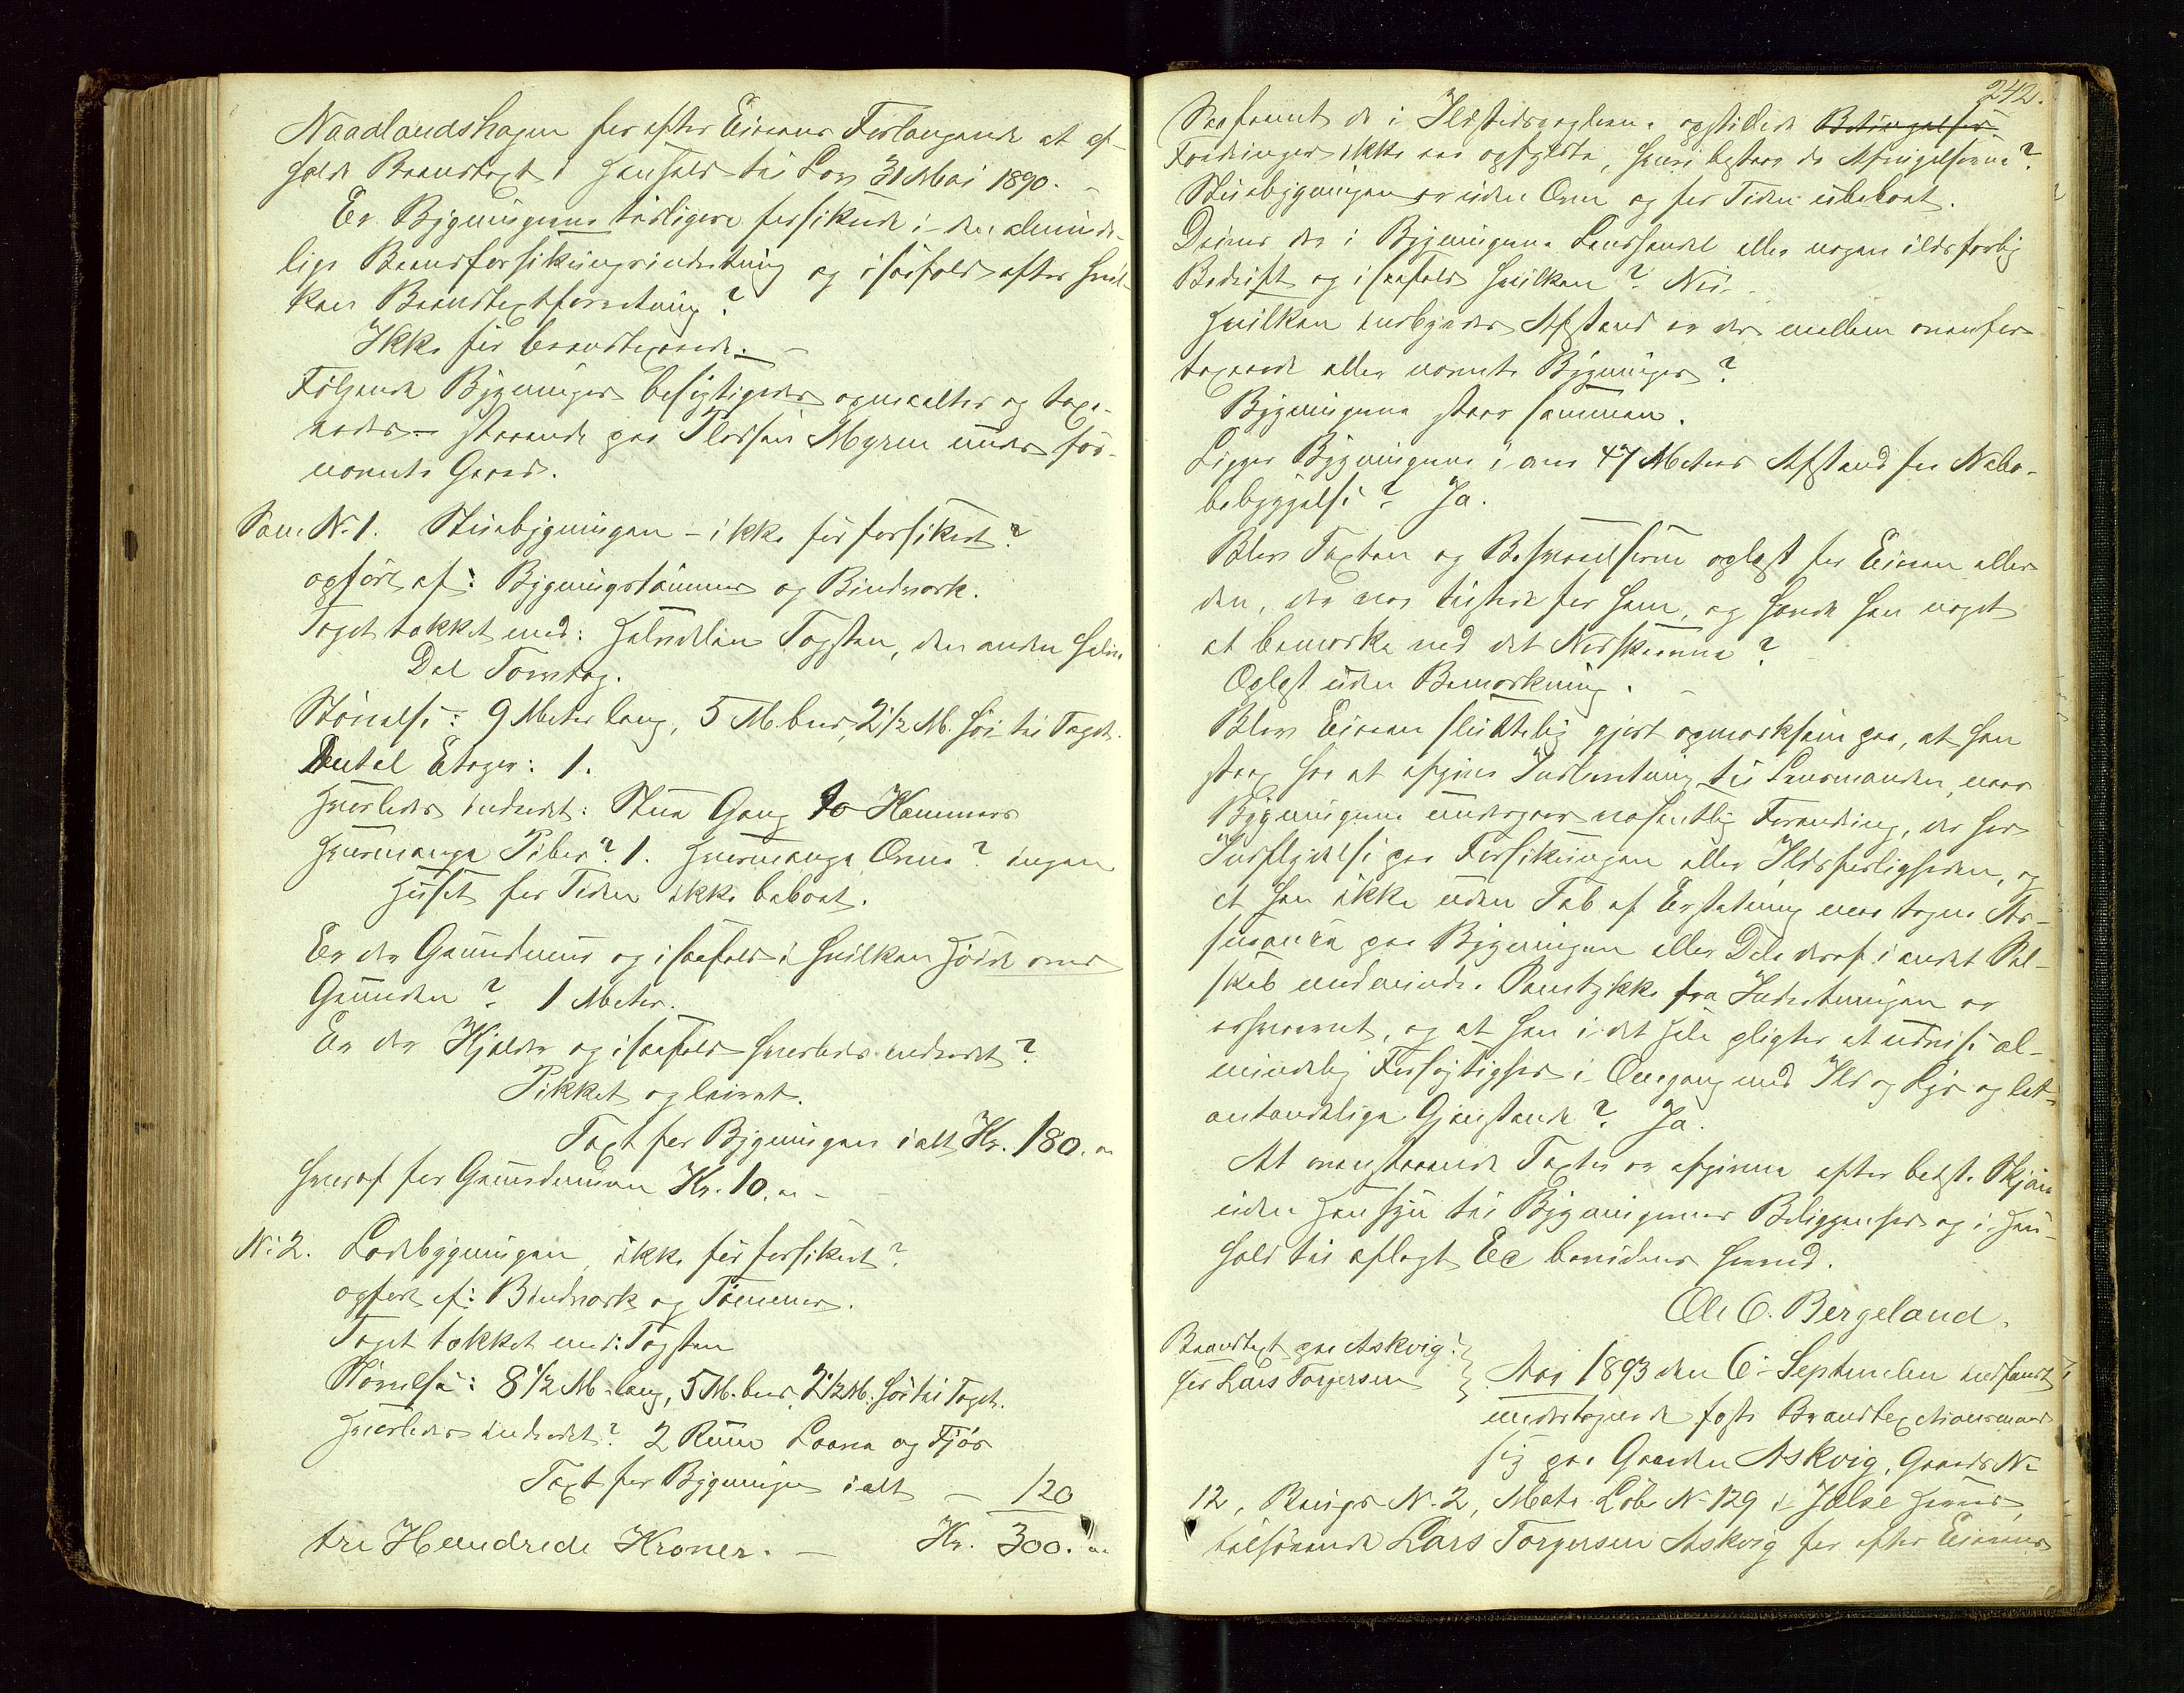 Naadlandshagen for efter Eierens Forlangende at af-
holde Brandtaxt i Henhold til Lov 31 Mai 1890. –
Er Bygningerne tidligere forsikrede i den alminde-
lige Brandforsikringsindretning og isaafald efter hvil-
ken Brandtaxtforretning?
Ikke før brandtaxerede. –
Følgende Bygninger besigtigedes opmaaltes og taxe-
redes – staaende paa Pladsen Myren under før-
nævnte Gaard.
Som No 1. Stuebygningen – ikke før forsikret?
opført af: Bygningstømmer og Bindværk.
Taget tækket med: Halvdelen Tagsten, den anden halve
Del Torvtag.
Størrelse: 9 Meter lang, 5 M. bred, 2 1/2 M. høi til Taget.
Antal Etager: 1.
Hvorledes indredet: Stue Gang to Kammers
Hvormange Piber? 1. Hvormange Ovne? ingen
Huset for Tiden ikke beboet.
Er der Grundmur og isaafald i hvilken Høide over
Grunden? 1 Meter.
Er der Kjælder og isaafald hvorledes indredet?
Pikket og leiret.
Taxt for Bygningen ialt Kr. 180. „
hvoraf for Grundmuren Kr. 10. „ –
No 2. Ladebygningen, ikke før forsikret?
opført af: Bindværk og Tømmer.
Taget tækket med: Tagsten
Størrelse: 8 1/2 M. lang, 5 M. bred, 2 1/2 M. høi til Taget.
Hvorledes indredet? 2 Rum Laave og Fjøs
Taxt for Bygningen ialt – 120
tre Hundrede Kroner. – Kr. 300. „
242.
Saafremt de i Ildstedsreglerne opstillede Betingelser
Fordringer ikke ere opfyldte, hvori bestaar da Afvigelserne?
Stuebygningen er uden Ovn og for Tiden ubeboet.
Drives der i Bygningerne Landhandel eller nogen ildsfarlig
Bedrift og isaafald hvilken? Nei.
Hvilken indbyrdes Afstand er der mellem ovenfor
taxerede eller nævnte Bygninger?
Bygningerne staar sammen.
Ligger Bygningerne i over 47 Meters Afstand fra Nabo-
bebyggelse? Ja.
Blev Taxten og Besvarelserne oplæst for Eieren eller
den, der var tilstede for ham, og havde han noget
at bemærke ved det Nedskrevne?
Oplæst uden Bemærkning. –
Blev Eieren sluttelig gjort opmærksom paa, at han
strax har at afgive Indberetning til Lensmanden, naar
Bygningerne undergaar væsentlig Forandring, der har
Indflydelse paa Forsikringen eller Ildsfarligheden, og
at han ikke uden Tab af Erstatning maa tegne As-
surance paa Bygningen eller Dele deraf i andet Sel-
skab medmindre Samtykke fra Indretningen er
erhvervet, og at han i det Hele pligter at udvise al-
mindelig Forsigtighed i Omgang med Ild og Lys og let-
antændelige Gjenstande? Ja.
At ovenstaaende Taxter er afgivne efter bedste Skjøn
uden Hensyn til Bygningernes Beliggenhed og i Hen-
hold til aflagt Ed bevidnes herved.
Ole O. Bergeland.
Brandtaxt paa Askvig
hos Lars Torgersen
Aar 1893 den 6. September indfandt
undertegnede faste Brandtaxationsmænd
sig paa Gaarden Askvig, Gaards No
12, Brugs No 2, Matr. Løbe No 129 i Jelse Herred,
tilhørende Lars Torgersen Askvig for efter Eierens